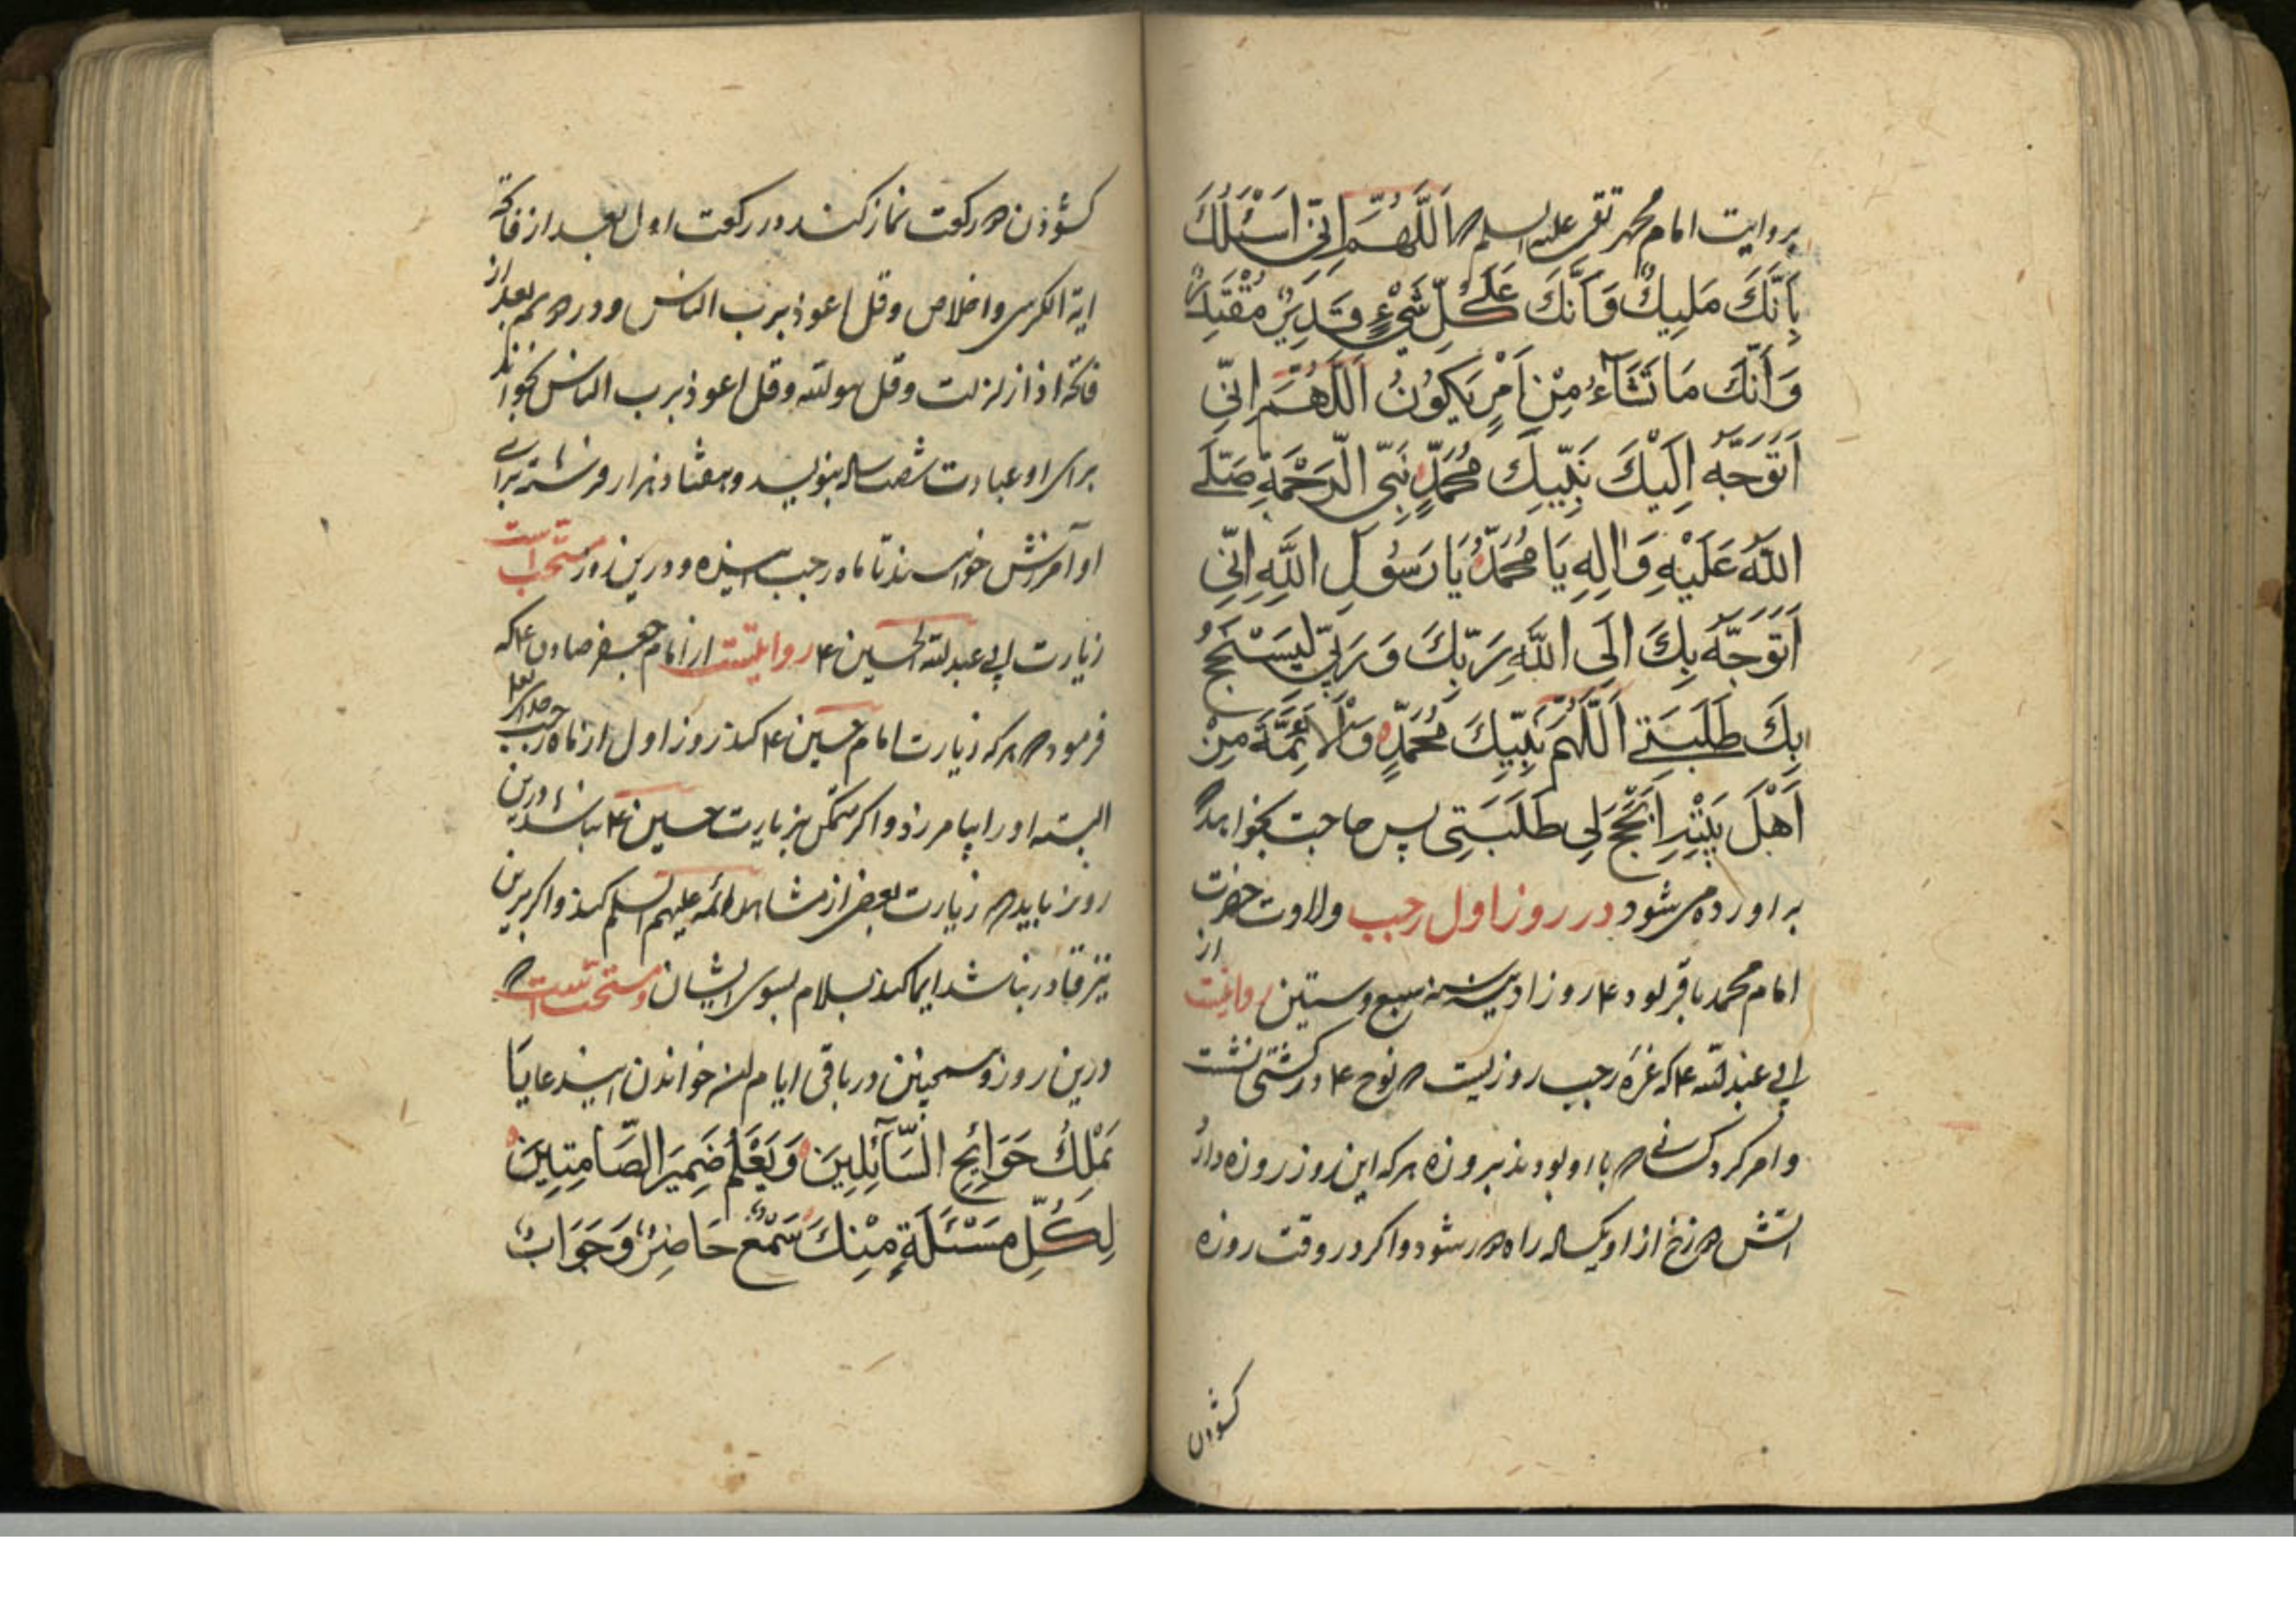 بروایت امام محمد تقی علیه السلم اَللّٰهُمَّ اِنّی اَسْئَلُكَ
بِاَنَّكَ مَلیكٌ وَاَنَّكَ عَلٰی كُلِّ شَیْءٍ قَدیرٌ مُقْتَدِرٌ
وَاَنَّكَ مَا تَشَآءُ مِنْ اَمْرٍ یَكُونُ اَللّٰهُمَّ اِنّی
اَتَوَجَّهُ اِلَیْكَ بِنَبِیِّكَ مُحَمَّدٍ نَبِیِّ الرَّحْمَةِ صَلَّی
اللّٰهُ عَلَیْهِ وَاٰلِهِ یَا مُحَمَّدُ یَا رَسُولَ اللّٰهِ اِنّی
اَتَوَجَّهُ بِكَ اِلَی اللّٰهِ رَبِّكَ وَرَبّی لِیُنْجِحَ
بِكَ طَلِبَتی اَللّٰهُمَّ بِنَبِیِّكَ مُحَمَّدٍ وَالْاَئِمَّةِ مِنْ
اَهْلِ بَیْتِهِ اَنْجِحْ لی طَلِبَتی پس حاجت بخواهد که
براورده می شود در روز اول رجب ولادت حضرت
امام محمد باقر بود ع روز ادینه سنه سبع و ستین روایتست از
ابی عبدلله ع که غره رجب روزیست که نوح ع در کشتی نشست
وامر کرد کسانی که با او بودند بروزه هر که این روز روزه دارد
اتش دوزخ از او یکساله راه دور شود و اکر در وقت روزه
کشودن
کشوذن دو رکعت نماز کند در رکعت اول بعد از فاتحه
ایة الکرسی واخلاص وقل اعوذ برب الناس ودر دویم بعد از
فاتحه اذا زلزلت وقل هو لله وقل اعوذ برب الناس بخواند
برای او عبادت شصت ساله بنویسد وهفتاد هزار فرشته برای
او آمرزش خواهند تا ماه رجب اینده ودرین روز مستحب است
زیارت ابی عبدلله الحسین ع روایتست از امام جعفر صادق ع که
فرمود که هر که زیارت امام حسین ع کند روز اول از ماه رجب خدای تعالی
البته او را بیامرزذ و اکر متمکن بزیارت حسین ع نباشد درین
روز باید که زیارت بعض از مشاهد ائمه علیهم السلم کند واکر برین
نیز قادر نباشد ایما کند بسلام بسوی ایشان ومستحب است که
درین روز وهمچنین در باقی ایام خواندن این دعا یَا
یَمْلِكُ حَوَائِجَ السَّآئِلینَ وَیَعْلَمُ ضَمیرَ الصَّامِتینَ
لِكُلِّ مَسْئَلَةٍ مِنْكَ سَمْعٌ حَاضِرٌ وَجَوَابٌ